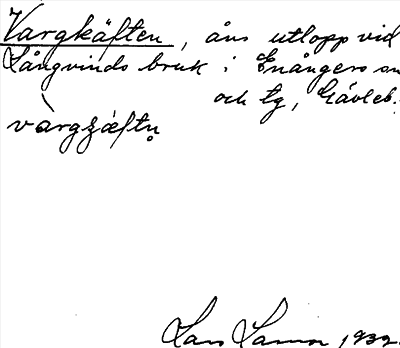 Vargkäften, åns utlopp vid
Långvinds bruk i Enångers sn
och tg, Gävleb.
vàrgʒæftn̥
Lars 1932.